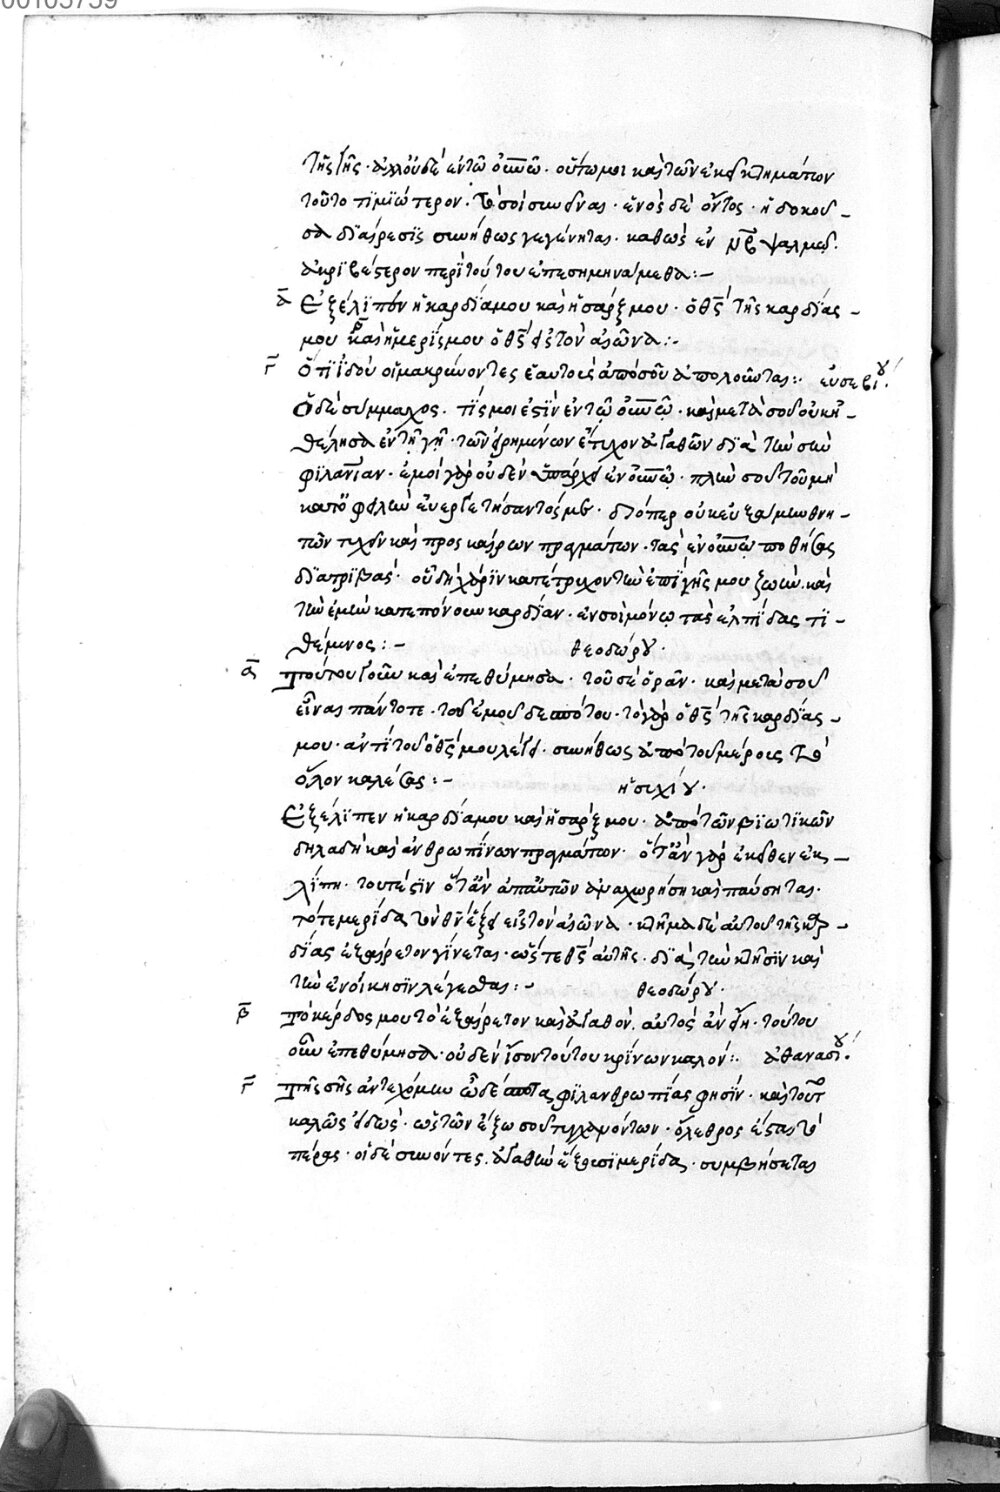 00103759
τῆς γῆς· ἀλλ' οὐδὲ ἐν τῶ οὐνῶ· οὕτω μοι καὶ τῶν ἐκεῖ κτημάτων
τοῦτο τιμιώτερον· τὸ σοὶ συνεῖναι· ἑνὸς δὲ ὄντος· ἡ δοκοῦ-
σα διαίρεσις συνήθως γεγένηται· καθὼς ἐν ψαλμῶ
ἀκριβέστερον περὶ τούτου ἐπεσημηνάμεθα:-
α Ἐξέλιπεν ἡ καρδία μου καὶ ἡ σάρξ μου· ὁ θς τῆς καρδίας-
μου β καὶ ἡ μερίς μου ὁ θς εἰς τὸν αἰῶνα:-
γ Ὅτι ἰδοὺ οἱ μακρύνοντες ἑαυτοὺς ἀπὸ σοῦ ἀπολοῦνται: εὐσεβίου
Ὁ δὲ σύμμαχος· τίς μοι ἐστὶν ἐν τῶ οὐνῶ· καὶ μετὰ σοῦ οὐκ ἠ-
θέλησα ἐν τῇ γῇ· τῶν εἰρημένων ἔτυχον ἀγαθῶν διὰ τὴν σὴν
φιλανίαν· ἐμοὶ γὰρ οὐδὲν ὑπάρχει ἐν οὐνῶ· πλὴν σοῦ τοῦ μὴ
κατ' ὀφειλὴν εὐεργετήσαντός με· διόπερ οὐκ εὐξαίμην θνη-
τῶν τυχεῖν καὶ προσκαίρων πραγμάτων· τὰς ἐν οὐνῶ ποθήσας
διατριβάς· οὗ δὴ χάριν κατέτρυχον τὴν ἐπὶ γῆς μου ζωὴν· καὶ
τὴν ἐμὴν κατεπόνουν καρδίαν· ἐν σοὶ μόνῳ τὰς ἐλπίδας τι-
θέμενος:- θεοδώρου·
α τούτου γοῦν καὶ ἐπεθύμησα· τοῦ σὲ ὁρᾶν· καὶ μετὰ σοῦ
εἶναι πάντοτε· τοῦ ἐμοῦ δεσπότου· τὸ γὰρ ὁ θς τῆς καρδίας-
μου· ἀντὶ τοῦ ὁ θς μου λέγει· συνήθως ἀπὸ τοῦ μέρους τὸ
ὅλον καλέσας:- ἡσυχίου·
Ἐξέλιπεν ἡ καρδία μου καὶ ἡ σάρξ μου· ἀπὸ τῶν βιωτικῶν
δηλαδὴ καὶ ἀνθρωπίνων πραγμάτων· ὅταν γὰρ ἐκεῖθεν ἐκ-
λίπη· τουτέστιν ὅταν ἀπ' αὐτῶν ἀναχωρήση καὶ παύσηται·
τότε μερίδα τὸν θν ἕξει εἰς τὸν αἰῶνα· κτῆμα δὲ αὐτοῦ τῆς καρ-
δίας ἐξαίρετον γίνεται· ὥστε θς αὐτῆς· διὰ τὴν κτῆσιν καὶ
τὴν ἐνοίκησιν λέγεσθαι:- θεοδώρου·
β τὸ κέρδος μου τὸ ἐξαίρετον καὶ ἀγαθόν· αὐτὸς ἂν εἴη· τούτου
οὖν ἐπεθύμησα· οὐδὲν ἴσον τούτου κρίνων καλόν: ἀθανασίου
γ τῆς σῆς ἀντεχόμην ὦ δέσποτα φιλανθρωπίας φησίν· καὶ τοῦτο
καλῶς εἰδώς· ὡς τῶν ἔξω σοῦ τυγχανόντων· ὄλεθρος ἔσται τὸ
πέρας· οἱ δὲ συνόντες· ἀγαθὴν ἕξουσι μερίδα· συμβήσεται